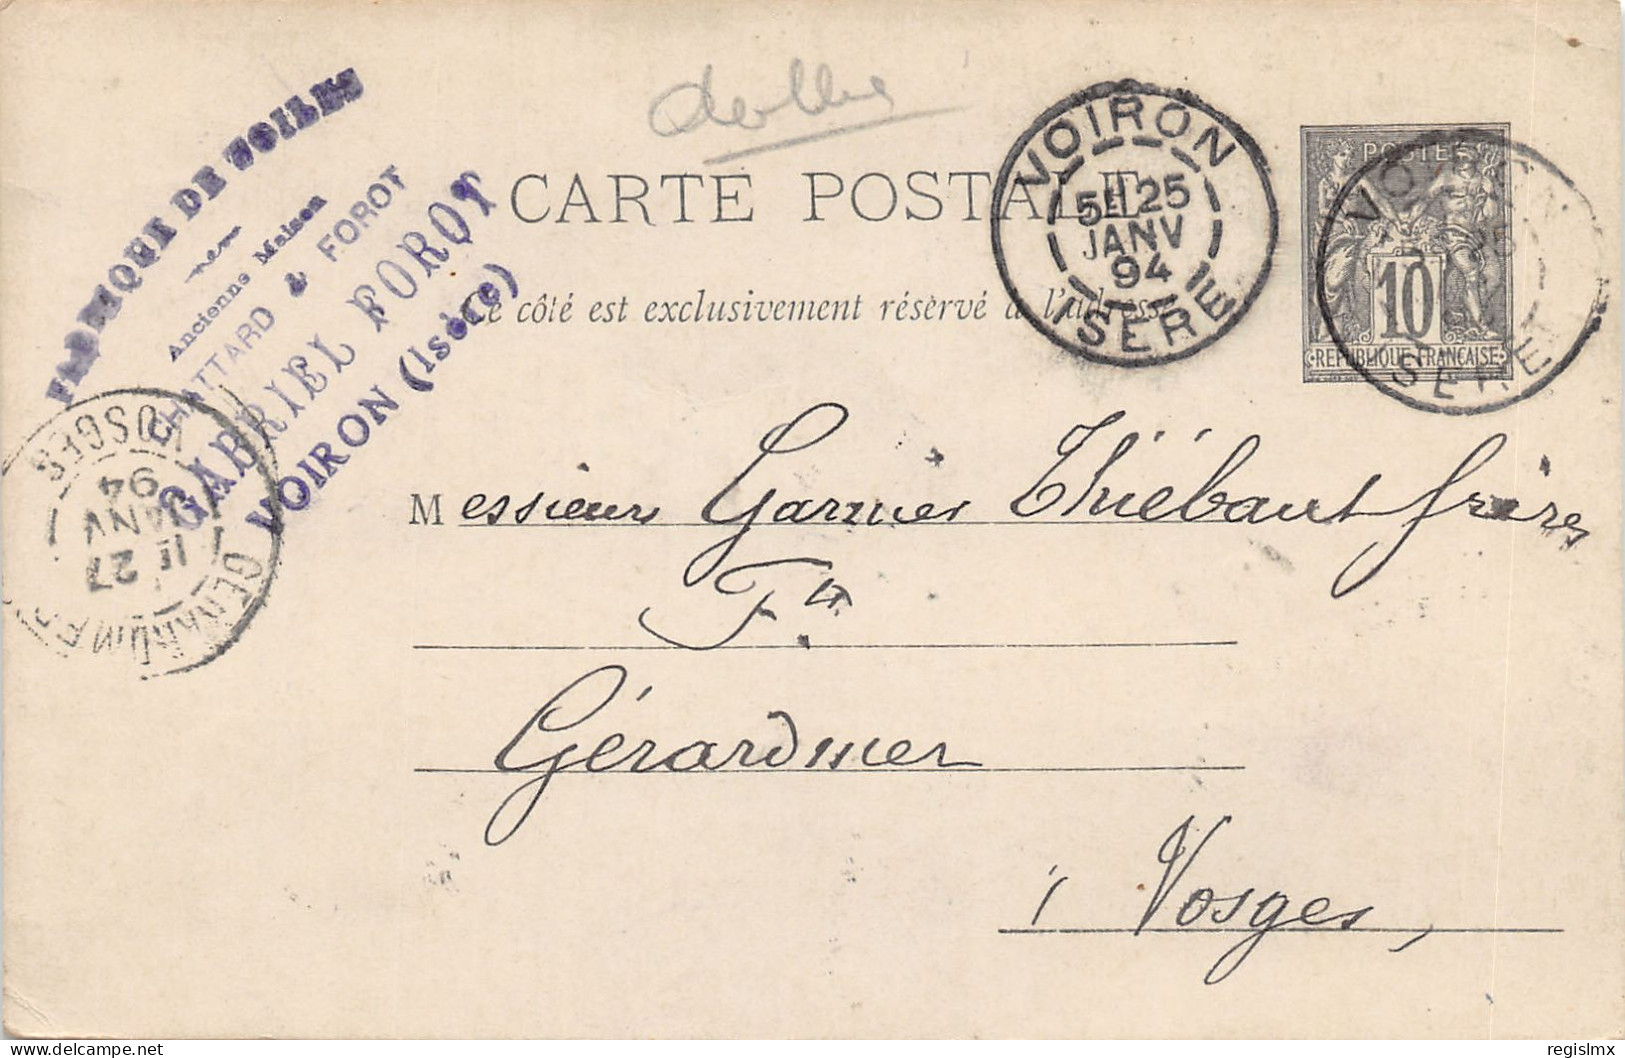 FABRIQUE DE TOILES
Ancienne Maison
CHATTARD & FOROT
GABRIEL FOROT
VOIRON (Isère)
CARTE POSTALE
Ce côté est exclusivement réservé à l'adresse
VOIRON
5E 25
JANV
94
ISERE
POSTES
10
REPUBLIQUE FRANÇAISE
VOIRON
25
ISERE
Messieurs Garnier Thiébaut frères
Fts
Gérardmer
Vosges,
GERARDMER
27
JANV
94
VOSGES
delcampe.net
regislmx